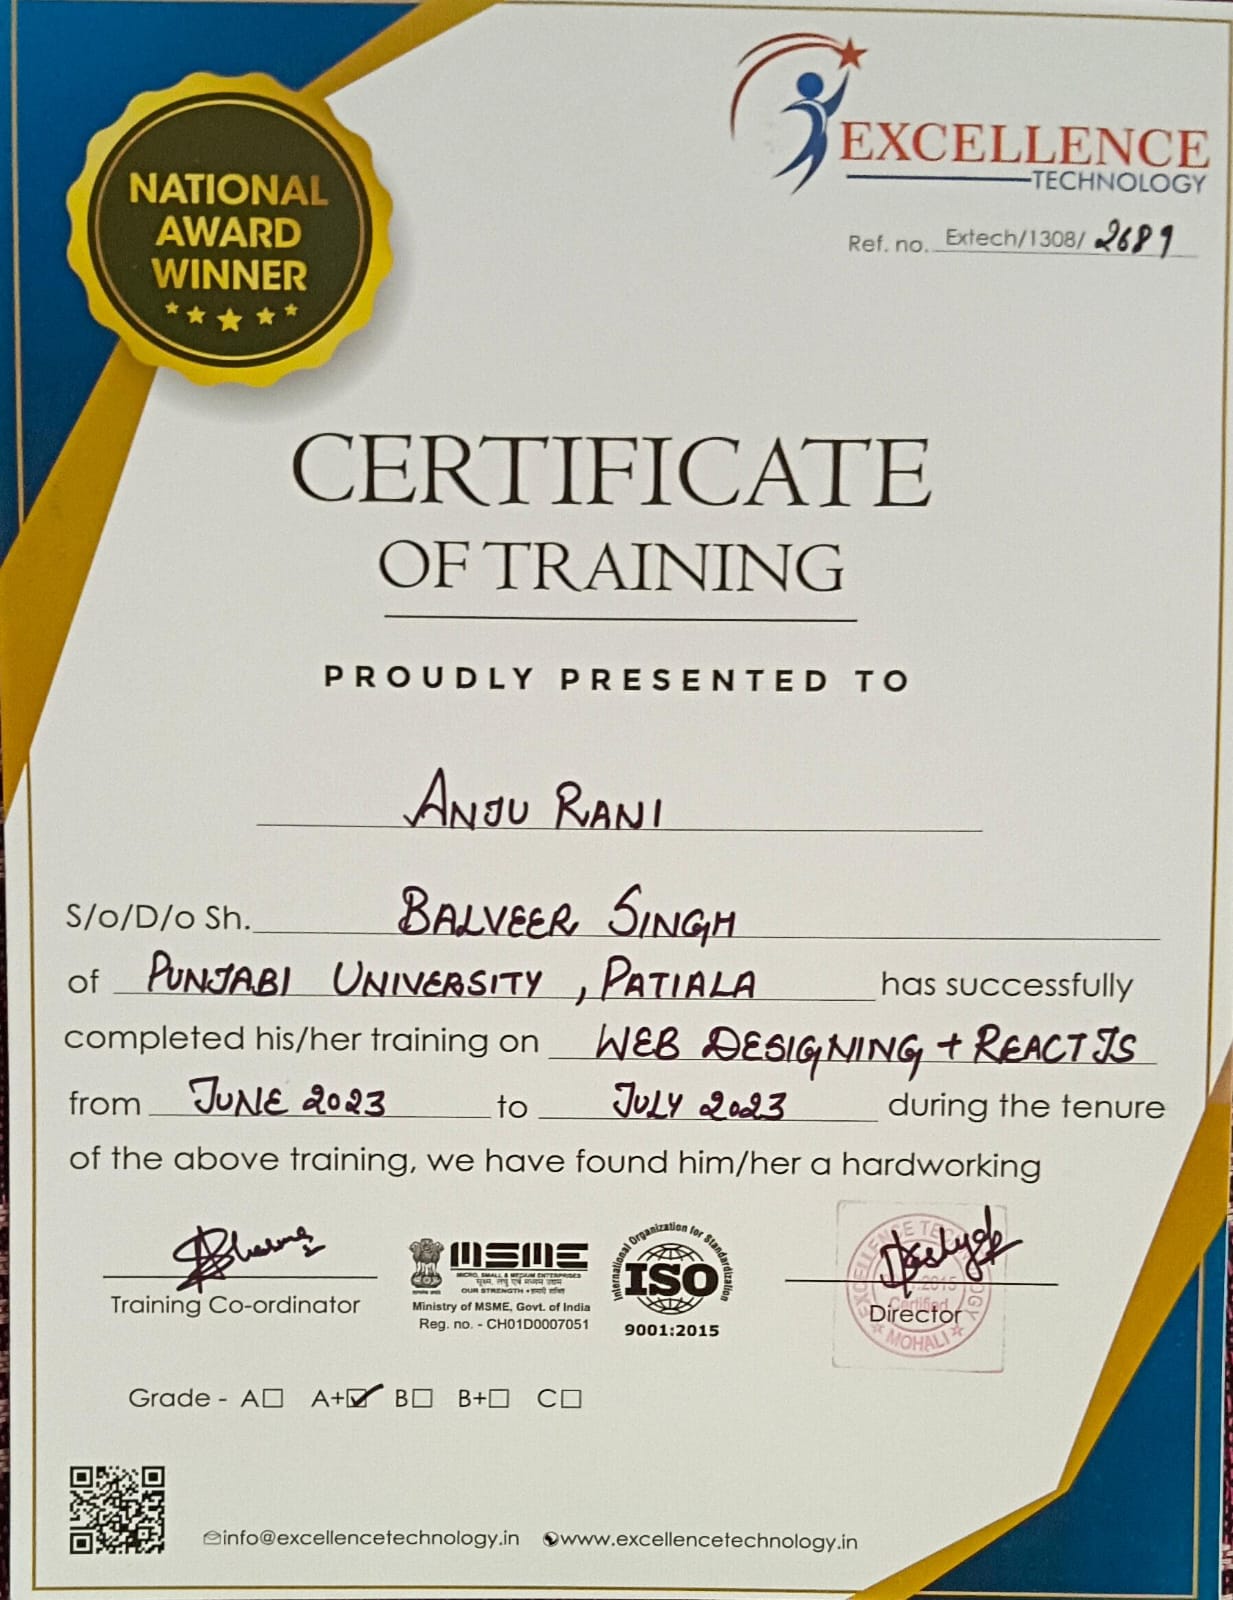 NATIONAL
AWARD
WINNER
EXCELLENCE
TECHNOLOGY
Ref. no. Extech/1308/ 2689
CERTIFICATE
OF TRAINING
PROUDLY PRESENTED TO
ANJU RANI
S/o/D/o Sh. BALVEER SINGH
of PUNJABI UNIVERSITY, PATIALA has successfully
completed his/her training on WEB DESIGNING + REACT JS
from JUNE 2023 to JULY 2023 during the tenure
of the above training, we have found him/her a hardworking
Training Co-ordinator
MSME
MICRO, SMALL & MEDIUM ENTERPRISES
सूक्ष्म, लघु एवं मध्यम उद्यम
OUR STRENGTH • हमारी शक्ति
सत्यमेव जयते
Ministry of MSME, Govt. of India
Reg. no. - CH01D0007051
International Organization for Standardization
ISO
9001:2015
EXCELLENCE TECHNOLOGY
2015
Certified
MOHALI
Director
Grade - A A+ B B+ C
info@excellencetechnology.in www.excellencetechnology.in